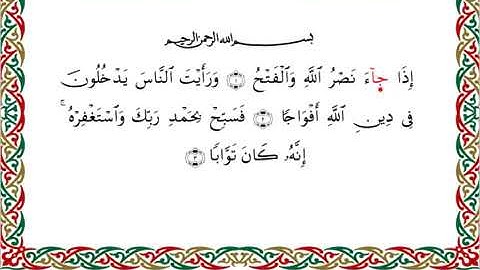 بِسْمِ اللَّهِ الرَّحْمَٰنِ الرَّحِيمِ
إِذَا جَآءَ نَصْرُ ٱللَّهِ وَٱلْفَتْحُ ١ وَرَأَيْتَ ٱلنَّاسَ يَدْخُلُونَ
فِى دِينِ ٱللَّهِ أَفْوَاجًا ٢ فَسَبِّحْ بِحَمْدِ رَبِّكَ وَٱسْتَغْفِرْهُ ۚ
إِنَّهُۥ كَانَ تَوَّابًۢا ٣